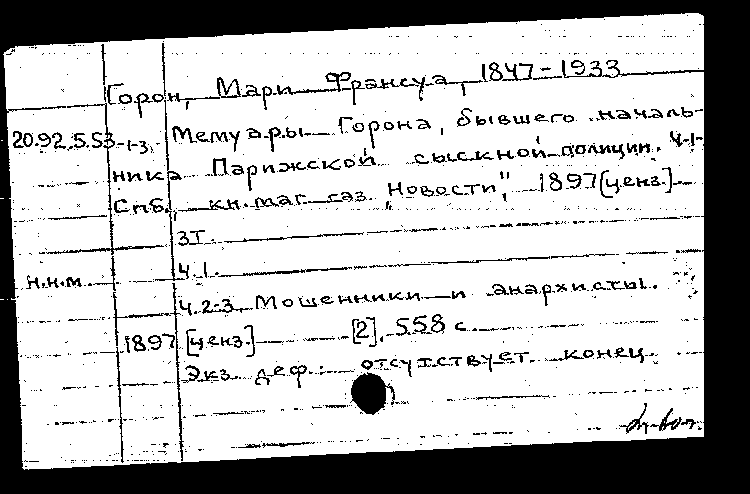 Горон, Мари Франсуа, 1847-1933
20.92.5.53-1-3. Мемуары Горона, бывшего началь-
ника Парижской сыскной полиции. Ч-1-
Спб., кн. маг. газ. „Новости“, 1897 [ценз.]
3т.
н.н.м. Ч.1.
Ч.2-3. Мошенники и анархисты.
1897 [ценз.] [2], 558 с.
Экз. деф.: отсутствует конец.